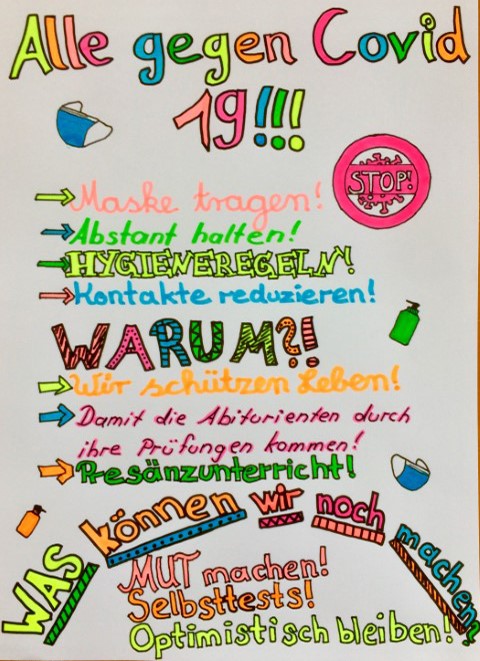 Alle gegen Covid
19!!!
STOP!
Maske tragen!
Abstant halten!
HYGIENEREGELN!
Kontakte reduzieren!
WARUM?!
Wir schützen Leben!
Damit die Abiturienten durch
ihre Prüfungen kommen!
Presänzunterricht!
WAS können wir noch machen?
MUT machen!
Selbsttests!
Optimistisch bleiben!